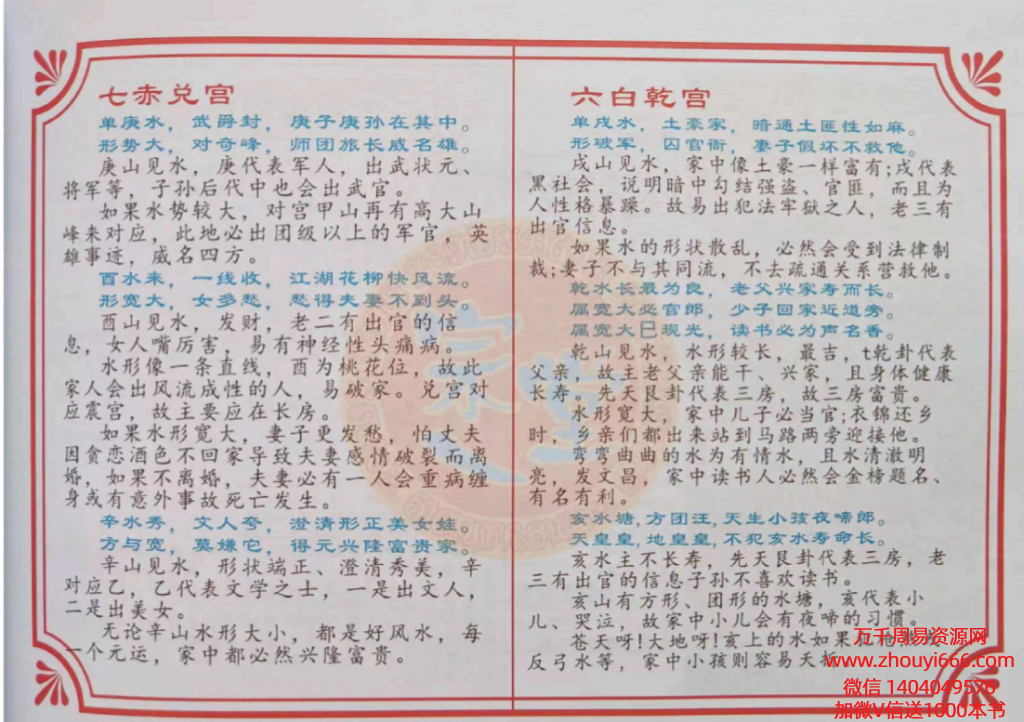 七赤兑宫
单庚水，武爵封，庚子庚孙在其中。
形势大，对奇峰，师团旅长威名雄。
庚山见水，庚代表军人，出武状元、
将军等，子孙后代中也会出武官。
如果水势较大，对宫甲山再有高大山
峰来对应，此地必出团级以上的军官，英
雄事迹，威名四方。
酉水来，一线收，江湖花柳快风流。
形宽大，女多愁，愁得夫妻不到头。
酉山见水，发财，老二有出官的信
息，女人嘴厉害，易有神经性头痛病。
水形像一条直线，酉为桃花位，故此
家人会出风流成性的人，易破家。兑宫对
应震宫，故主要应在长房。
如果水形宽大，妻子更发愁，怕丈夫
因贪恋酒色不回家导致夫妻感情破裂而离
婚，如果不离婚，夫妻必有一人会重病缠
身或有意外事故死亡发生。
辛水秀，文人夸，澄清形正美女娃。
方与宽，莫嫌它，得元兴隆富贵家。
辛山见水，形状端正、澄清秀美，辛
对应乙，乙代表文学之士，一是出文人，
二是出美女。
无论辛山水形大小，都是好风水，每
一个元运，家中都必然兴隆富贵。
六白乾宫
单戌水，土豪家，暗通土匪性如麻。
形破军，囚官衙，妻子假坏不救他。
戌山见水，家中像土豪一样富有;戌代表
黑社会，说明暗中勾结强盗、官匪，而且为
人性格暴躁。故易出犯法牢狱之人，老三有
出官信息。
如果水的形状散乱，必然会受到法律制
裁;妻子不与其同流，不去疏通关系营救他。
乾水长最为良，老父兴家寿而长。
属宽大必官郎，少子回家近道旁。
属宽大巳现光，读书必为声名香。
乾山见水，水形较长，最吉，t乾卦代表
父亲，故主老父亲能干、兴家，且身体健康
长寿。先天艮卦代表三房，故三房富贵。
水形宽大，家中儿子必当官;衣锦还乡
时，乡亲们都出来站到马路两旁迎接他。
弯弯曲曲的水为有情水，且水清澈明
亮，发文昌，家中读书人必然会金榜题名、
有名有利。
亥水塘,方团汪,天生小孩夜啼郎。
天皇皇,地皇皇,不犯亥水寿命长。
亥水主不长寿，先天艮卦代表三房，老
三有出官的信息子孙不喜欢读书。
亥山有方形、团形的水塘，亥代表小
儿、哭泣，故家中小儿会有夜啼的习惯。
苍天呀!大地呀!亥上的水如果
反弓水等，家中小孩则容易夭折
万千周易资源网
www.zhouyi666.com
微信 1404049576
加微V信送1000本书